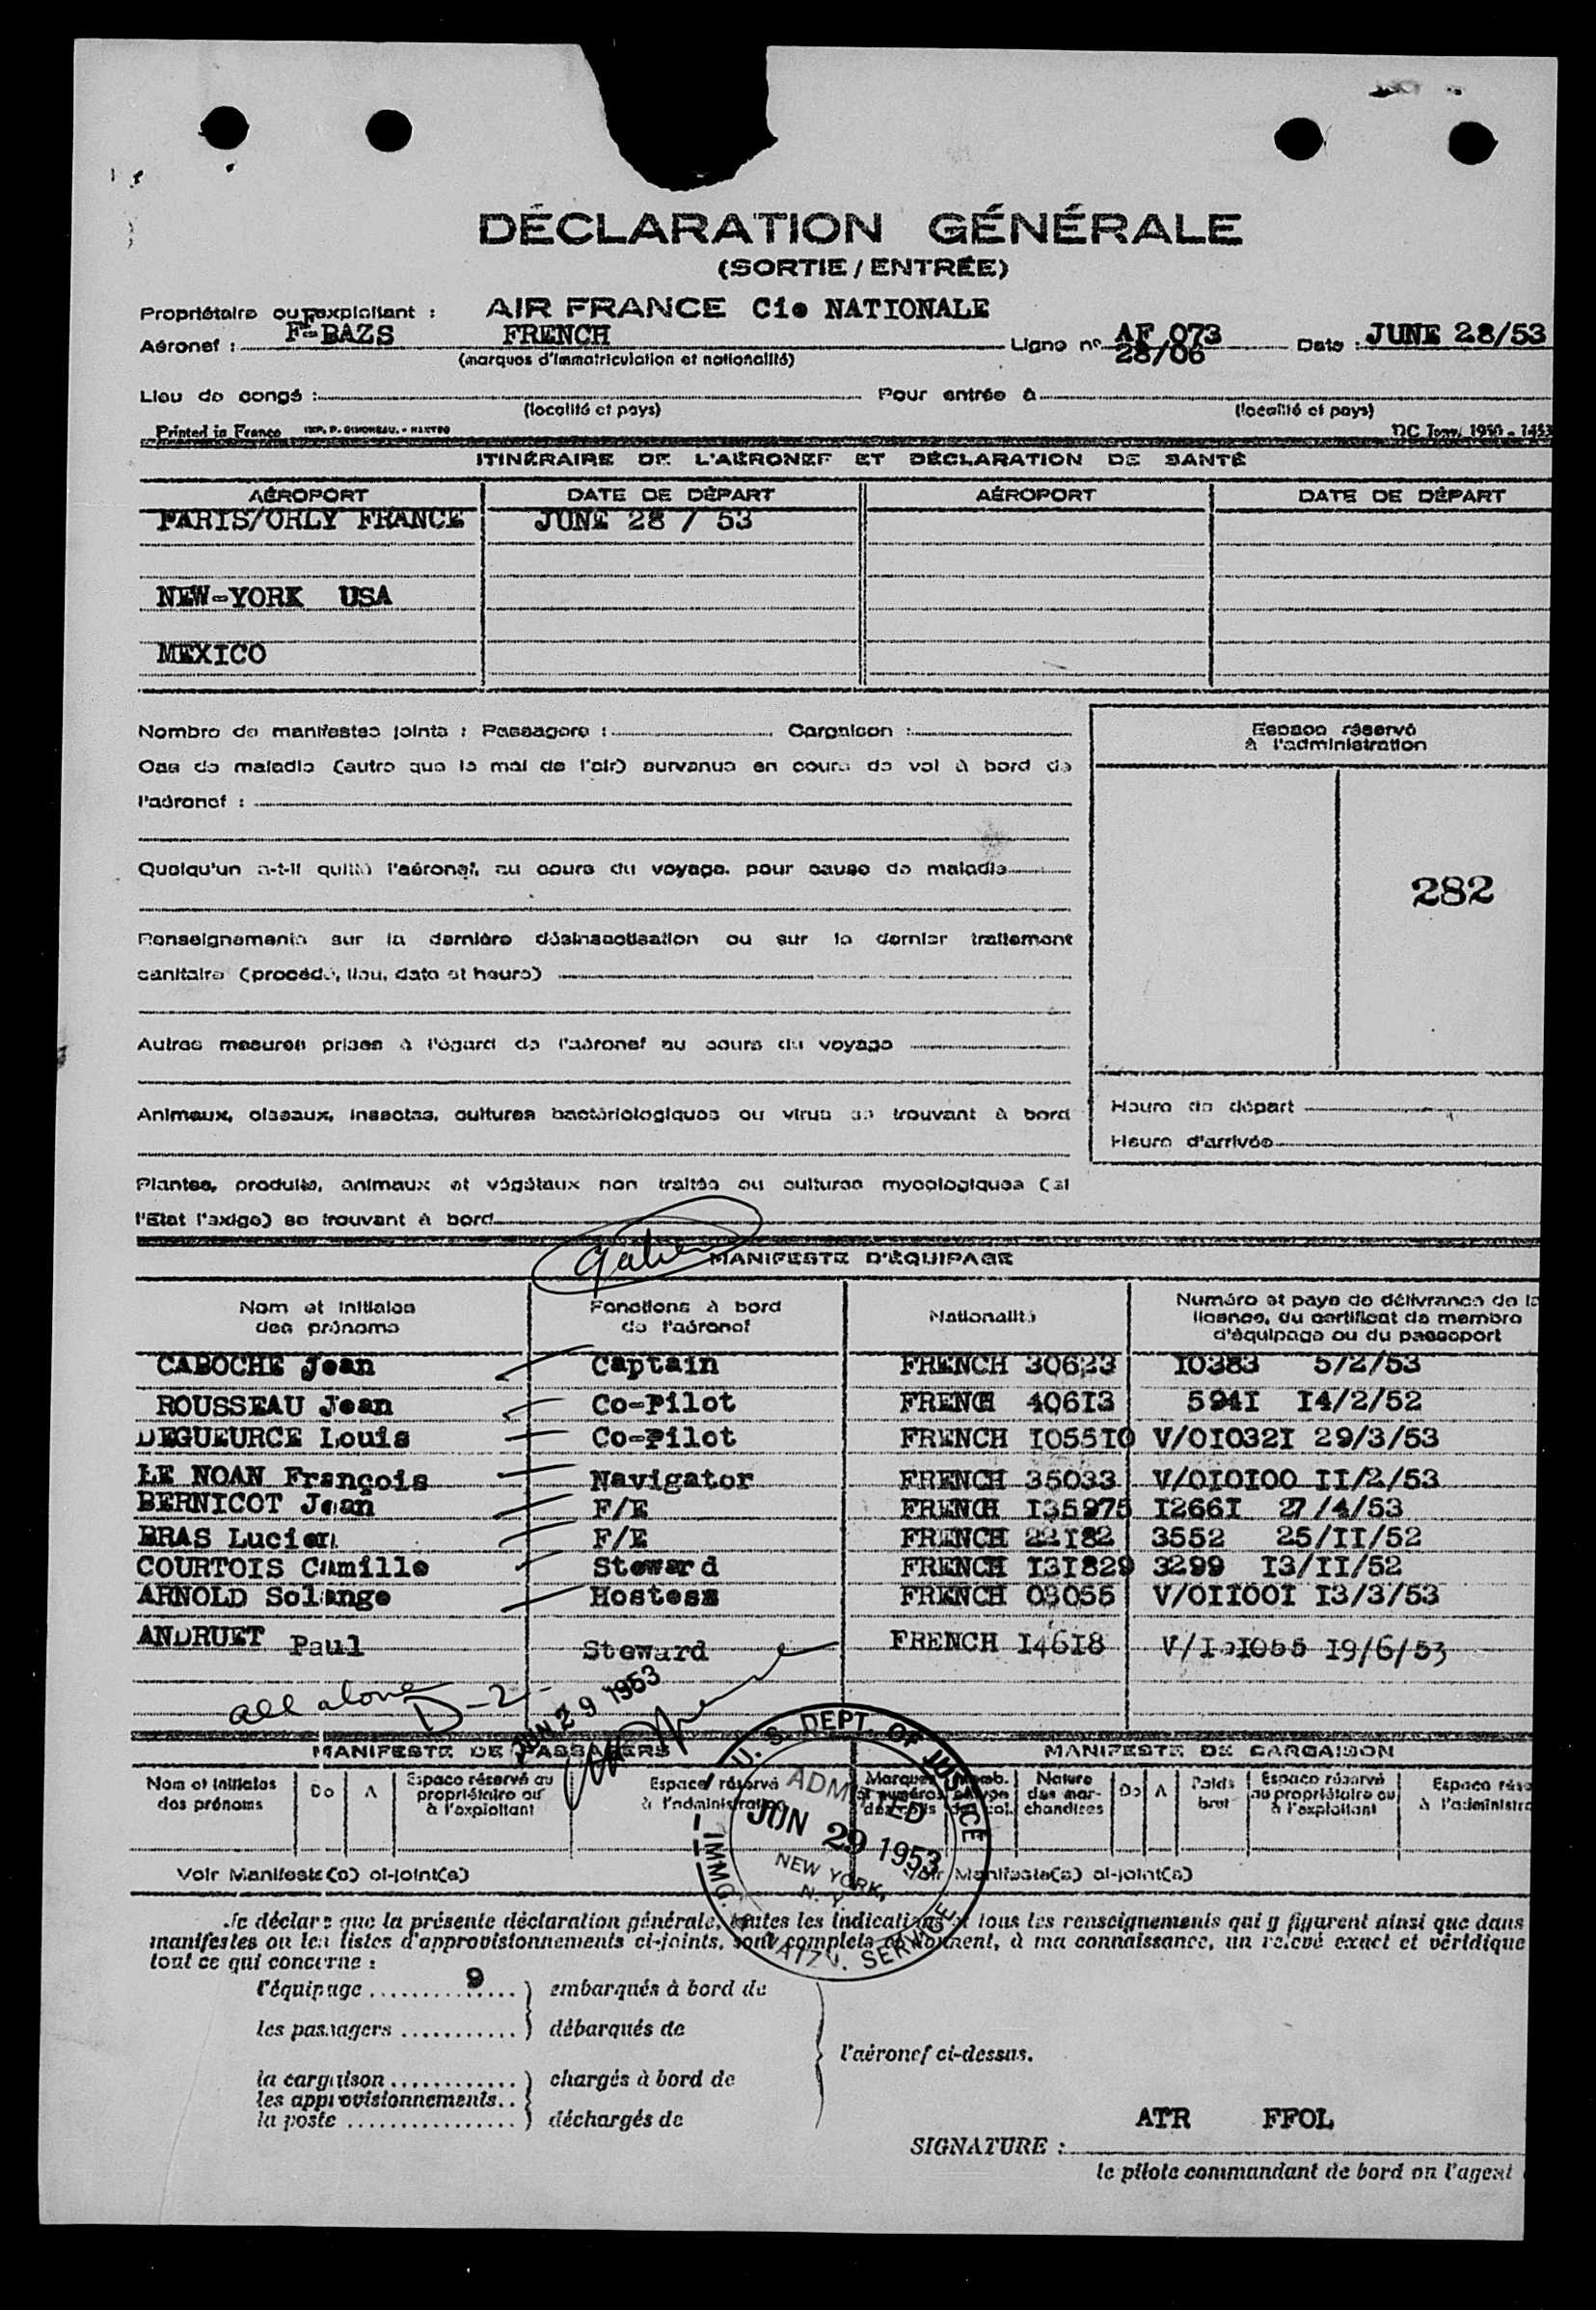 DÉCLARATION GÉNÉRALE
(SORTIE / ENTRÉE)
Propriétaire ou exploitant : AIR FRANCE Cie NATIONALE
Aéronef : F-BAZS FRENCH Ligne n° AF 073 Date : JUNE 28/53
(marques d'immatriculation et nationalité) 28/06
Lieu de congé : Pour entrée à
(localité et pays) (localité et pays)
Printed in France
ITINÉRAIRE DE L'AÉRONEF ET DÉCLARATION DE SANTÉ
AÉROPORT DATE DE DÉPART AÉROPORT DATE DE DÉPART
PARIS/ORLY FRANCE JUNE 28 / 53
NEW-YORK USA
MEXICO
Nombre de manifestes joints : Passagers : Cargaison :
Espace réservé
à l'administration
Cas de maladie (autre que le mal de l'air) survenus en cours de vol à bord de
l'aéronef :
Quelqu'un a-t-il quitté l'aéronef, au cours du voyage, pour cause de maladie
282
Renseignements sur la dernière désinsectisation ou sur le dernier traitement
sanitaire (procédé, lieu, date et heure)
Autres mesures prises à l'égard de l'aéronef au cours du voyage
Animaux, oiseaux, insectes, cultures bactériologiques ou virus se trouvant à bord
Heure de départ
Heure d'arrivée
Plantes, produits, animaux et végétaux non traités ou cultures mycologiques (si
l'Etat l'exige) se trouvant à bord
MANIFESTE D'ÉQUIPAGE
Nom et initiales des prénoms Fonctions à bord de l'aéronef Nationalité Numéro et pays de délivrance de la licence, du certificat de membre d'équipage ou du passeport
CABOCHE Jean Captain FRENCH 30623 I0383 5/2/53
ROUSSEAU Jean Co-Pilot FRENCH 406I3 594I I4/2/52
DEGUEURCE Louis Co-Pilot FRENCH I055I0 V/0I032I 29/3/53
LE NOAN François Navigator FRENCH 35033 V/0I0I00 II/2/53
BERNICOT Jean F/E FRENCH I35975 I266I 27/4/53
BRAS Lucien F/E FRENCH 22I82 3552 25/II/52
COURTOIS Camille Steward FRENCH I3I829 3299 I3/II/52
ARNOLD Solange Hostess FRENCH 03055 V/0II00I I3/3/53
ANDRUET Paul Steward FRENCH I46I8 I9/6/53
all alone D-2-
JUN 29 1953
MANIFESTE DE PASSAGERS MANIFESTE DE CARGAISON
Nom et initiales des prénoms De A Espace réservé au propriétaire ou à l'exploitant Espace réservé à l'administration Nature des marchandises De A Poids brut Espace réservé au propriétaire ou à l'exploitant
U. S. DEPT. OF JUSTICE
ADMITTED
JUN 29 1953
NEW YORK,
N. Y.
IMMG. & NATZN. SERVICE
Voir Manifeste(s) ci-joint(s) Voir Manifeste(s) ci-joint(s)
Je déclare que la présente déclaration générale, toutes les indications et tous les renseignements qui y figurent ainsi que dans
manifestes ou les listes d'approvisionnements ci-joints, sont complets et donnent, à ma connaissance, un relevé exact et véridique
tout ce qui concerne :
l'équipage 9 embarqués à bord de
les passagers débarqués de
l'aéronef ci-dessus.
la cargaison chargés à bord de
les approvisionnements..
la poste déchargés de
ATR FFOL
SIGNATURE :
le pilote commandant de bord ou l'agent